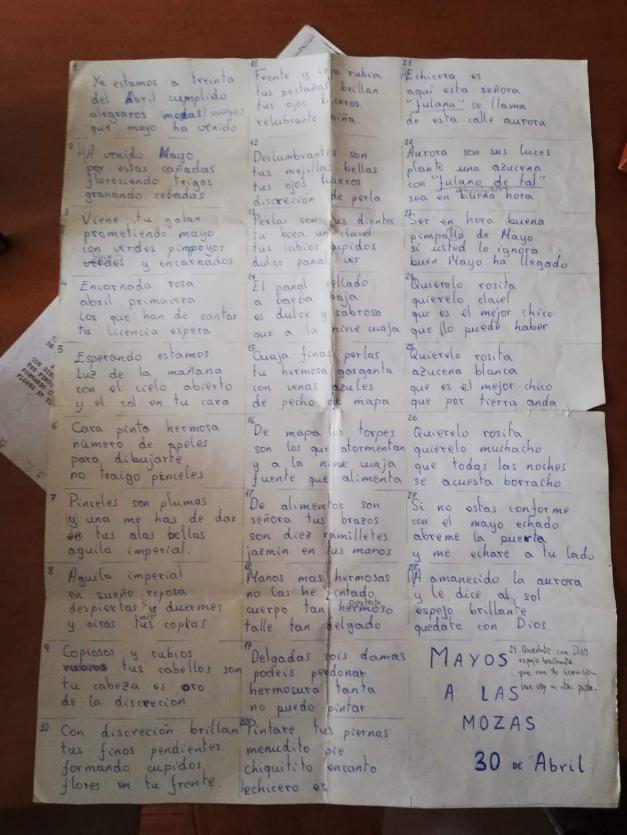 1
Ye estamos a treinta
del Abril cumplido
alegraros modas
que mayo ha venido
2
HA venido Mayo
por estas cañadas
floreciendo trigos
granando cebadas
3
Viene tu galan
prometiendo mayo
con verdes pimpoyos
verdes y encarnados
4
Encarnada rosa
abril primavera
los que han de cantar
tu licencia espera
5
Esperando estamos
Luz de la mañana
con el cielo abierto
y el sol en tu cara
6
Cara pinta hermosa
número de apeles
para dibujarte
no traigo pinceles
7
Pinceles son plumas
y una me has de dar
en tus alas bellas
aguila imperial.
8
Aguila imperial
en sueño reposa
despiertas y duermes
y oiras tus coplas
9
Copiosos y rubios
rubios tus cabellos son
tu cabeza es oro
de la discrecion
10
Con discreción brillan
tus finos pendientes
formando cupidos
flores en tu frente.
11
Frente y ceja rubia
tus pestañas brillan
tus ojos luceros
relubrante niña.
12
Deslumbrantes son
tus mejillas bellas
tus ojos luceros
discreción de perla
Perlas son tus dientes
tu boca un clavel
tus labios cupidos
dulce panal ver
14
El panal sellado
a barba baja
es dulce y sabroso
que a la nieve cuaja
15
Cuaja finas perlas
tu hermosa garganta
con venas azules
de pecho de mapa
16
De mapa los torpes
son los que atormentan
y a la nieve cuaja
fuente que alimenta
17
De alimentos son
señora tus brazos
son diez ramilletes
jazmin en tus manos
18
Manos mas hermosas
no las he pintado
cuerpo tan hermoso
talle tan delgado
19
Delgadas sois damas
podeis perdonar
hermosura tanta
no puedo pintar
20
Pintare tus piernas
menudito pie
chiquitito encanto
echicero es
21
HEchicera es
aqui esta señora
"fulana" se llama
de esta calle aurora
22
Aurora son sus luces
plante una azucena
con "fulano de tal"
sea en buena hora
23
Ser en hora buena
pimpollo de Mayo
si usted lo ignora
buen Mayo ha llegado
24
Quierelo rosita
quierelo clavel
que es el mejor chico
que lo puede haber
25
Quierelo rosita
azucena blanca
que es el mejor chico
que por tierra anda
26
Quierelo rosita
quierelo muchacho
que todas las noches
se acuesta borracho
27
Si no estas conforme
con el mayo echado
abreme la puerta
y me echare a tu lado
28
HA amanecido la aurora
y le dice al sol
espejo brillante
quedate con Dios.
29. Quedate con Dios
espejo brillante
que con tu licencia
me voy a otra parte.
MAYOS
A LAS
MOZAS
30 DE Abril